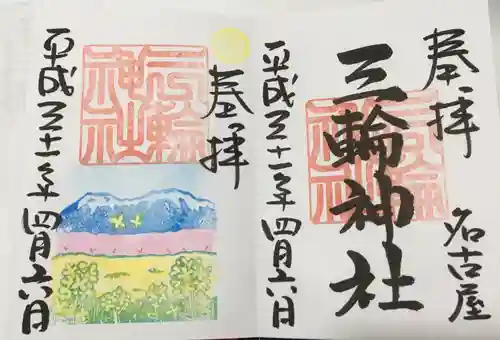 奉拝
名古屋
三輪神社
三輪
神社
平成三十一年四月六日
奉拝
三輪
神社
平成三十一年四月六日